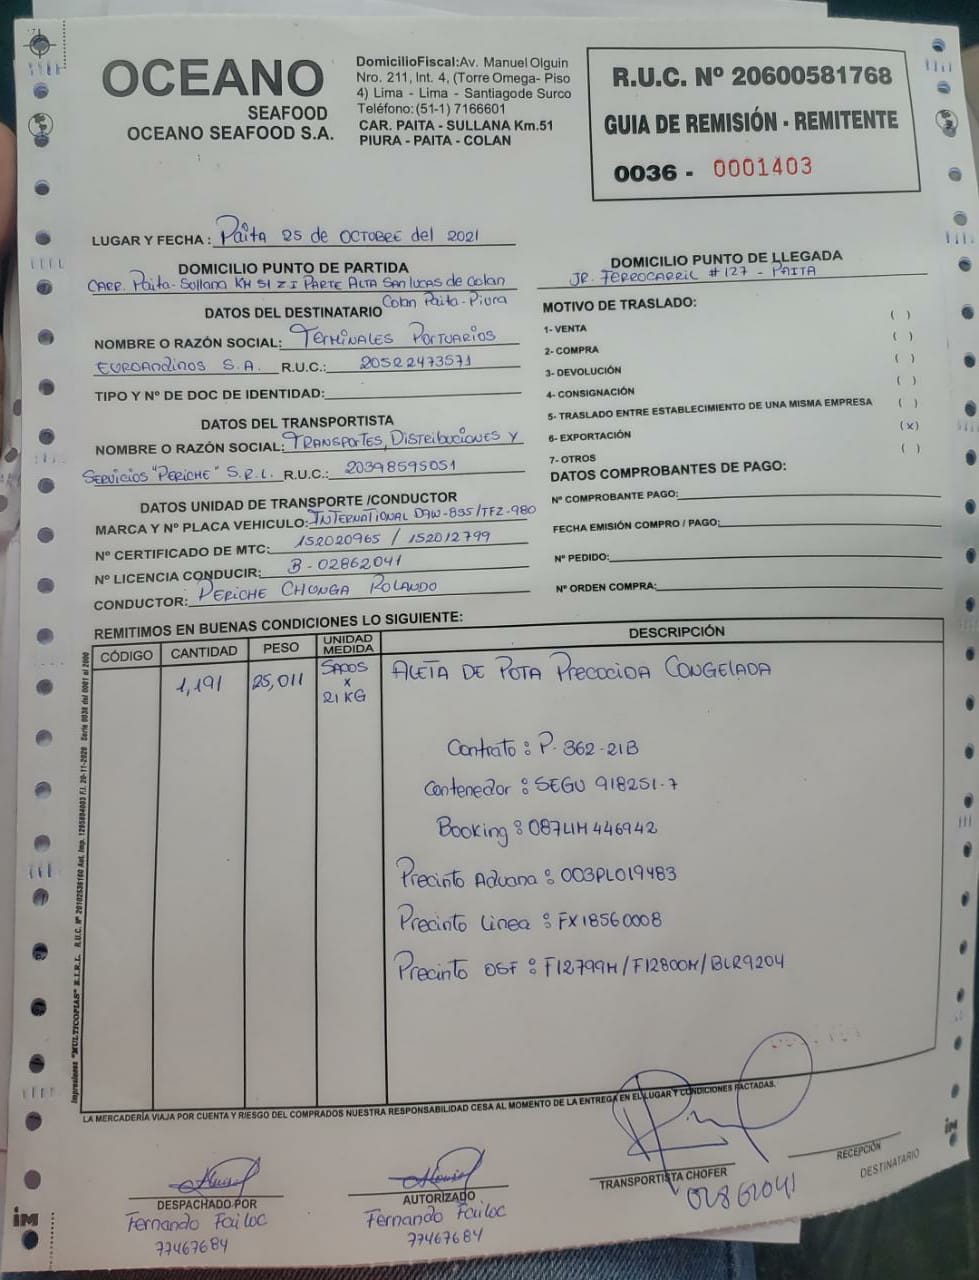 OCEANO
SEAFOOD
OCEANO SEAFOOD S.A.
DomicilioFiscal:Av. Manuel Olguin
Nro. 211, Int. 4, (Torre Omega- Piso
4) Lima - Lima - Santiagode Surco
Teléfono:(51-1) 7166601
CAR. PAITA - SULLANA Km.51
PIURA - PAITA - COLAN
R.U.C. Nº 20600581768
GUIA DE REMISIÓN - REMITENTE
0036 - 0001403
LUGAR Y FECHA : Paita 25 de OCTOBRE del 2021
DOMICILIO PUNTO DE PARTIDA
CARR. Paita-Sullana KM 51 Z I PARTE ALTA SAN lucas de Colan
Colan Paita-Piura
DOMICILIO PUNTO DE LLEGADA
JR. FERROCARRIL # 127 - PAITA
DATOS DEL DESTINATARIO
NOMBRE O RAZÓN SOCIAL: TERMINALES PORTUARIOS
EUROANDINOS S.A. R.U.C.: 20522473571
TIPO Y Nº DE DOC DE IDENTIDAD:
DATOS DEL TRANSPORTISTA
NOMBRE O RAZÓN SOCIAL: TRANSPORTES, Distribuciones Y
Servicios "PERICHE" S.R.L. R.U.C.: 20398595051
DATOS UNIDAD DE TRANSPORTE /CONDUCTOR
MARCA Y Nº PLACA VEHICULO: INTERNATIONAL D9W-835/TFZ-980
Nº CERTIFICADO DE MTC: 152020965 / 152012799
Nº LICENCIA CONDUCIR: B-02862041
CONDUCTOR: PERICHE CHUNGA ROLANDO
MOTIVO DE TRASLADO:
1- VENTA ( )
2- COMPRA ( )
3- DEVOLUCIÓN ( )
4- CONSIGNACIÓN ( )
5- TRASLADO ENTRE ESTABLECIMIENTO DE UNA MISMA EMPRESA ( )
6- EXPORTACIÓN (x)
7- OTROS ( )
DATOS COMPROBANTES DE PAGO:
Nº COMPROBANTE PAGO:
FECHA EMISIÓN COMPRO / PAGO:
Nº PEDIDO:
Nº ORDEN COMPRA:
REMITIMOS EN BUENAS CONDICIONES LO SIGUIENTE:
CÓDIGO CANTIDAD PESO UNIDAD MEDIDA DESCRIPCIÓN
1,191 25,011 SACOS x 21 KG ALETA DE POTA PRECOCIDA CONGELADA
Contrato : P. 362-21B
Contenedor : SEGU 918251-7
Booking : 087LIM446942
Precinto Aduana : 003PL019483
Precinto Linea : FX18560008
Precinto OSF : F12799M/F12800M/BLR9204
Impresiones "MULTICOPIAS" E.I.R.L. R.U.C. Nº 20102536160 Aut. Imp. 1295804083 F.I. 20-11-2020 Serie 0036 del 0001 al 2000
LA MERCADERÍA VIAJA POR CUENTA Y RIESGO DEL COMPRADOS NUESTRA RESPONSABILIDAD CESA AL MOMENTO DE LA ENTREGA EN EL LUGAR Y CONDICIONES PACTADAS.
DESPACHADO POR
Fernando Failoc
77467684
AUTORIZADO
Fernando Failoc
77467684
TRANSPORTISTA CHOFER
02862041
RECEPCIÓN
DESTINATARIO
iM
iM